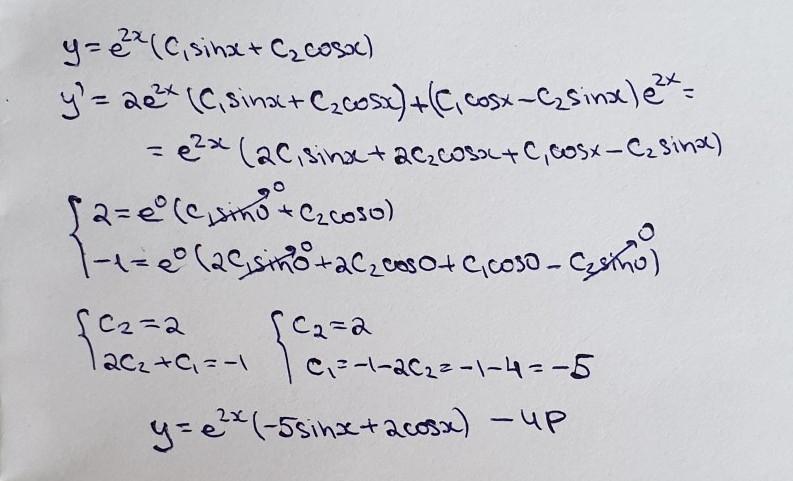 y = e^{2x}(C₁sinx + C₂cosx)
y' = 2e^{2x}(C₁sinx + C₂cosx) + (C₁cosx − C₂sinx)e^{2x} =
= e^{2x}(2C₁sinx + 2C₂cosx + C₁cosx − C₂sinx)
{ 2 = e⁰(C₁sin0 ⁰ + C₂cos0)
−1 = e⁰(2C₁sin0 ⁰ + 2C₂cos0 + C₁cos0 − C₂sin0 ⁰)
{ C₂ = 2 { C₂ = 2
2C₂ + C₁ = −1 C₁ = −1 − 2C₂ = −1 − 4 = −5
y = e^{2x}(−5sinx + 2cosx) − ЧР